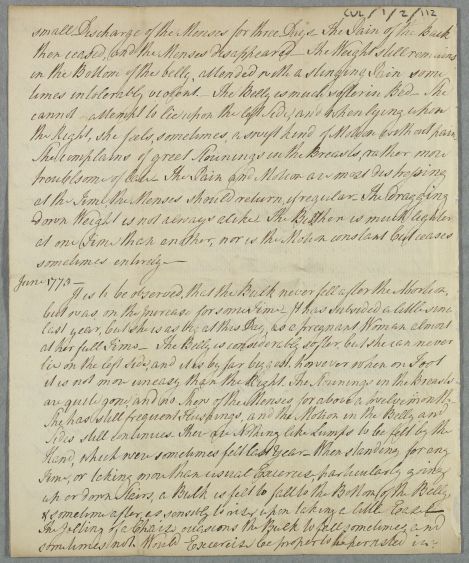 CUL/1/2/112
small Discharge of the Menses for three Days. The Pain of the Back
then ceased, and the Menses disappeared. The Weight still remains
in the Bottom of the belly, attended with a stinging Pain some
times intolerably violent. The Belly is much softer in Bed. She
cannot attempt to lie upon the left Side, and when lying upon
the Right, she feels, sometimes, a swift kind of Motion without pain.
She complains of great in the Breasts, rather more
troublesome of late. The Pain and Motion are most distressing
at the Time the Menses should return, if regular. The Dragging
down Weight is not always alike. The Burthen is much lighter
at one Time than another, nor is the Motion constant but ceases
sometimes entirely —
June 1773 —
It is to be observed, that the Bulk never fell after the Abortion,
but was on the increase for some Time. It has subsided a little since
last year, but she is as big at this Day, as a pregnant Woman almost
at her full Time — The Belly is considerably softer, but she can never
lie on the left Side, and it is by far biggest, however when on Foot
it is not more uneasy than the Right. The in the Breasts
are quite gone, and no Show of the Menses for above a twelvemonth.
She has still frequent Flushings, and the Motion in the Belly and
Sides still continues. There are Nothing like Lumps to be felt by the
Hand, which were sometimes felt last year. When standing for any
Time, or taking more than usual Exercise, particularly going
up or down Stairs, a Bulk is felt to fall to the Bottom of the Belly,
& sometime after, as sensibly to rise, upon taking a little
The Jolting of a Chaise occasions the Bulk to fall sometimes, and
sometimes not. Would Exercise be proper to be persisted in